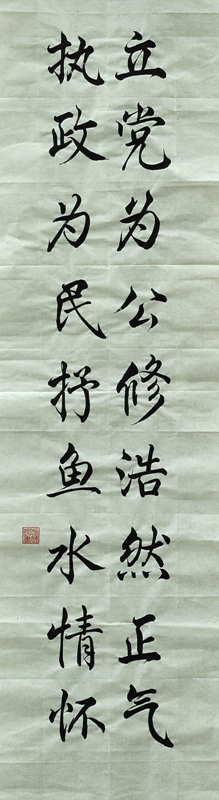 立党为公修浩然正气
执政为民抒鱼水情怀